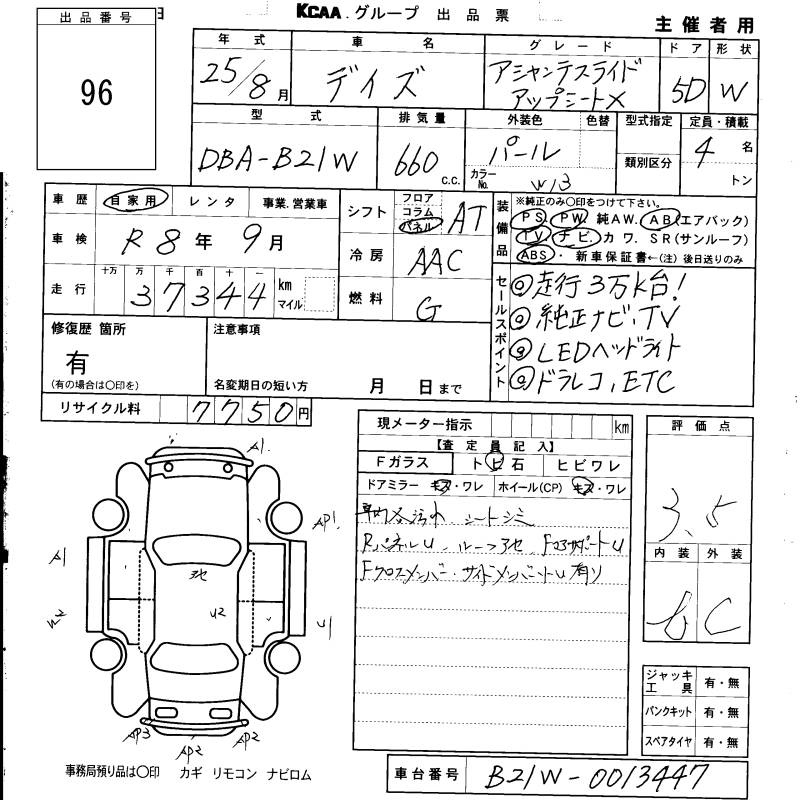 出品番号
96
KCAA.グループ 出品票
主催者用
年式 車名 グレード ドア 形状
25/8月 デイズ アシャンテスライドアップシートX 5D W
型式 排気量 外装色 色替 型式指定 定員・積載
DBA-B21W 660 C.C. パール 4名
カラーNo. W13 類別区分 トン
車歴 自家用 レンタ 事業.営業車
車検 R8年9月
走行 十万 万 千 百 十 一
37344 km マイル
シフト フロア コラム パネル AT
冷房 AAC
燃料 G
装備品 ※純正のみ〇印をつけて下さい。
PS PW 純AW. AB(エアバック)
TV ナビ. カワ. SR(サンルーフ)
ABS・ 新車保証書←(注)後日送りのみ
セールスポイント
◎走行3万K台!
◎純正ナビ、TV
◎LEDヘッドライト
◎ドラレコ、ETC
修復歴 箇所 注意事項
有
(有の場合は〇印を) 名変期日の短い方 月 日まで
リサイクル料 7750円
現メーター指示 km
【査定員記入】
Fガラス トビ石 ヒビワレ
ドアミラー キズ・ワレ ホイール(CP) キズ・ワレ
車内汚れ シートシミ
RパネルU ルーフアセ FコアサポートU
Fクロスメンバー・サイドメンバーU有り
評価点
3.5
内装 外装
b C
A1
AP1
A1
W2
アセ
U2
U1
AP3
AP2
AP2
ジャッキ工具 有・無
パンクキット 有・無
スペアタイヤ 有・無
事務局預り品は〇印 カギ リモコン ナビロム
車台番号 B21W-0013447